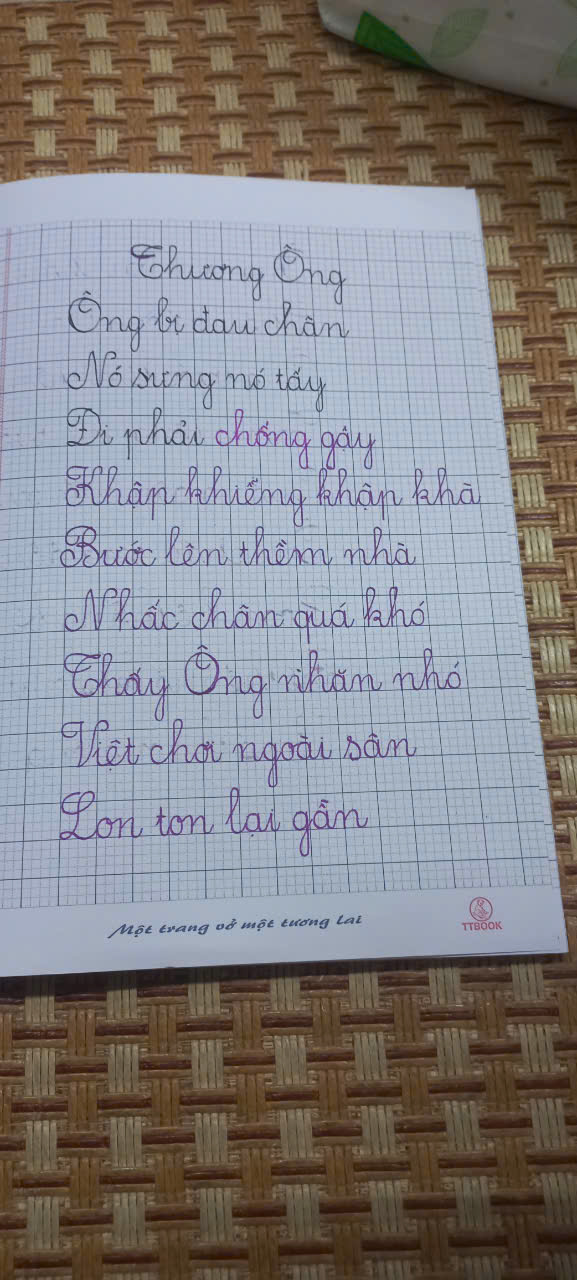 Thương Ông
Ông bị đau chân
Nó sưng nó tấy
Đi phải chống gậy
Khập khiễng khập khà
Bước lên thềm nhà
Nhấc chân quá khó
Thấy Ông nhăn nhó
Việt chơi ngoài sân
Lon ton lại gần
Một trang vở một tương lai
TTBOOK